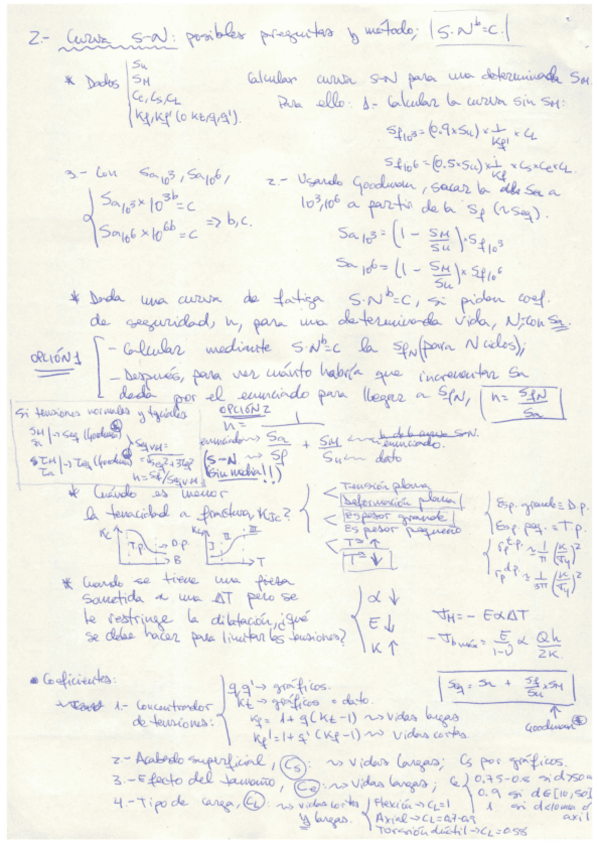 2.- Curva S-N: posibles preguntas y método; |S·N^b=C.|
* Datos | Su
SM
Ce, Cs, CL
Kf, Kf' (o kt, q, q').
Calcular curva S-N para una determinada SM.
Para ello: 1.- Calcular la curva sin SM:
Sf10³=(0.9×Su)×1/Kf'×CL
Sf10⁶=(0.5×Su)×1/Kf×Cs×Ce×CL
2.- Usando Goodman, sacar la Sa a
10³, 10⁶ a partir de la Sf (≈Seq).
Sa10³=(1 - SM/Su)·Sf10³
Sa10⁶=(1 - SM/Su)×Sf10⁶
3.- Con Sa10³, Sa10⁶,
Sa10³×10^3b=C
Sa10⁶×10^6b=C
=> b, c.
* Dada una curva de fatiga S·N^b=C, si piden coef.
de seguridad, n, para una determinada vida, N, con Sa:
OPCIÓN 1
- Calcular mediante S·N^b=C la SfN (para N ciclos);
- Después, para ver cuánto habría que incrementar Sa
dada por el enunciado para llegar a SfN, n = SfN/Sa
OPCIÓN 2
n = 1
enunciado Sa + SM enunciado.
(S-N Sf Su dato
sin mecha!!)
Si tensiones normales y
SM
Sa | → Seq (Goodman)
n = Sf/SeqVM
* Cuándo es menor
la tenacidad a fractura, KIc?
Tensión plana
Deformación plana
Espesor grande
Espesor pequeño
T ↑
T ↓
Kc T.p. D.p. B
K I II III T
Esp. grande = D.p.
Esp. peq. = T.p.
rp T.p. ≈ 1/π (K/σy)²
rp d.p. ≈ 1/3π (K/σy)²
* Cuando se tiene una pieza
sometida a una ΔT pero se
le restringe la dilatación, ¿qué
se debe hacer para limitar las tensiones?
α ↓
E ↓
K ↑
σM = - EαΔT
σb máx = E/1-ν α Qh/2K
• Coeficientes:
1.- Concentrador
de tensiones:
q, q' → gráficos.
Kt → gráficos = dato.
Kf = 1 + q (Kt-1) → vidas largas
Kf' = 1 + q' (Kf-1) → vidas cortas.
Seq = Sa + Sf/Su × SM
Goodman
2.- Acabado superficial, Cs: → vidas largas; Cs por gráficos.
3.- Efecto del tamaño, Ce: → vidas largas; Ce 0.75-0.8 si d>50
0.9 si d∈[10,50]
1 si d≤10mm ó
axil
4.- Tipo de carga, CL: → vidas cortas
y largas.
Flexión → CL=1
Axial → CL=0.7-0.9
Torsión dúctil → CL=0.58